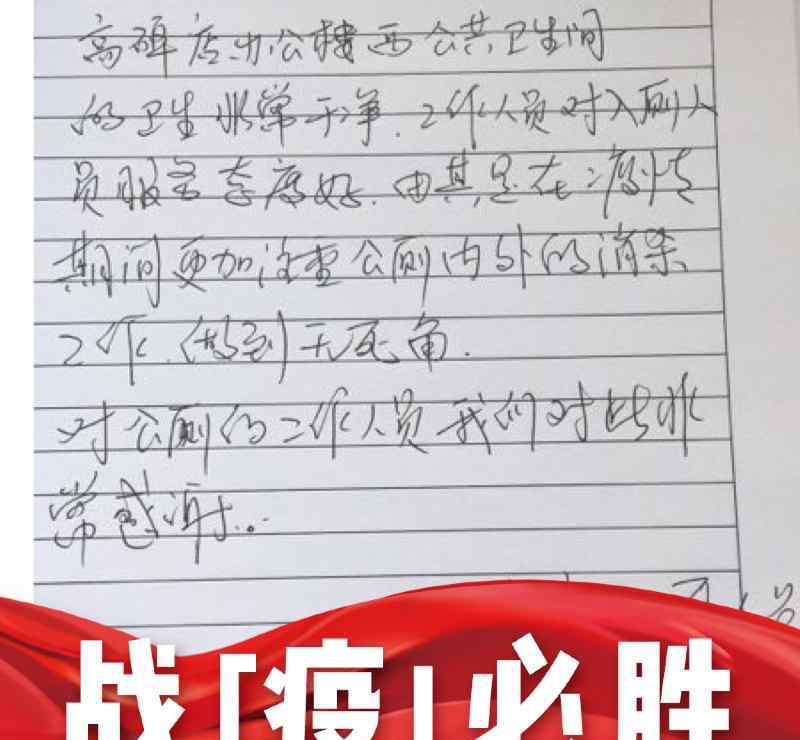 高碑店办公楼西公共卫生间
的卫生非常干净.工作人员对入厕人
员服务态度好.由其是在疫情
期间更加注重公厕内外的消杀
工作.做到无死角.
对公厕的工作人员我们对此非
常感谢...
战「疫」必胜